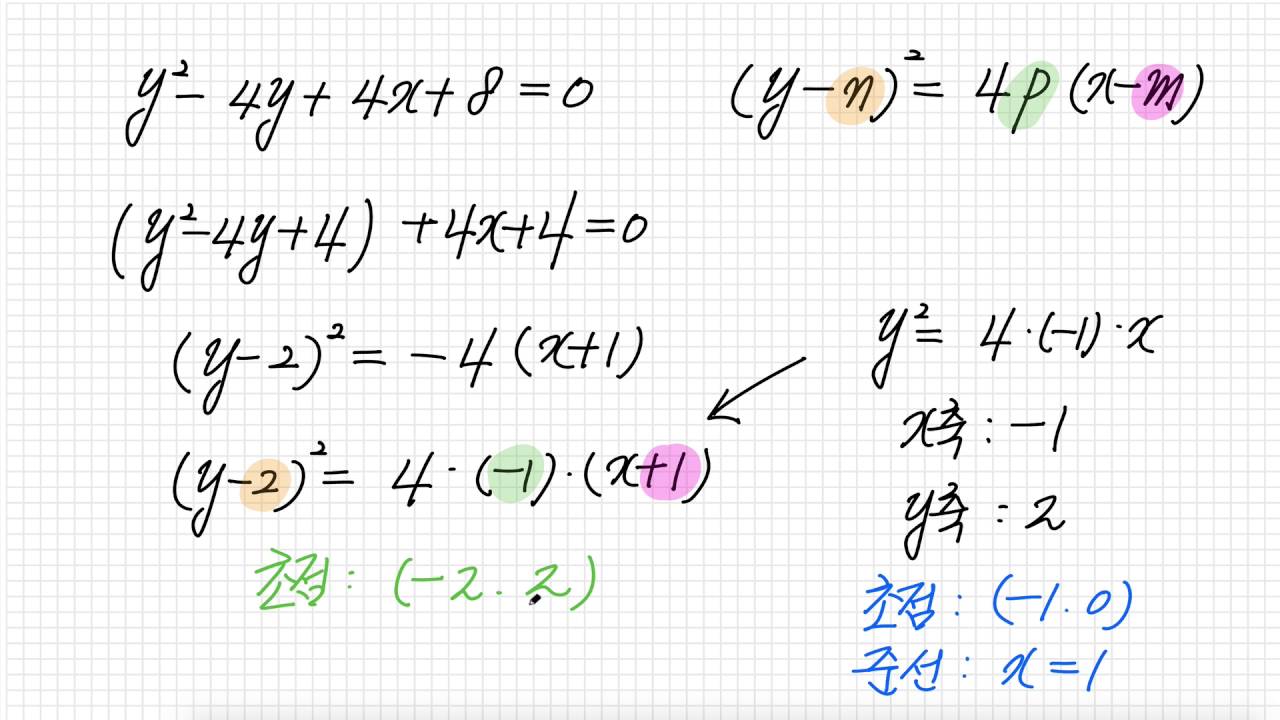 y² - 4y + 4x + 8 = 0
(y - n)² = 4p(x - m)
(y² - 4y + 4) + 4x + 4 = 0
(y - 2)² = -4(x + 1)
(y - 2)² = 4 · (-1) · (x + 1)
초점 : (-2. 2)
y² = 4 · (-1) · x
x축 : -1
y축 : 2
초점 : (-1. 0)
준선 : x = 1